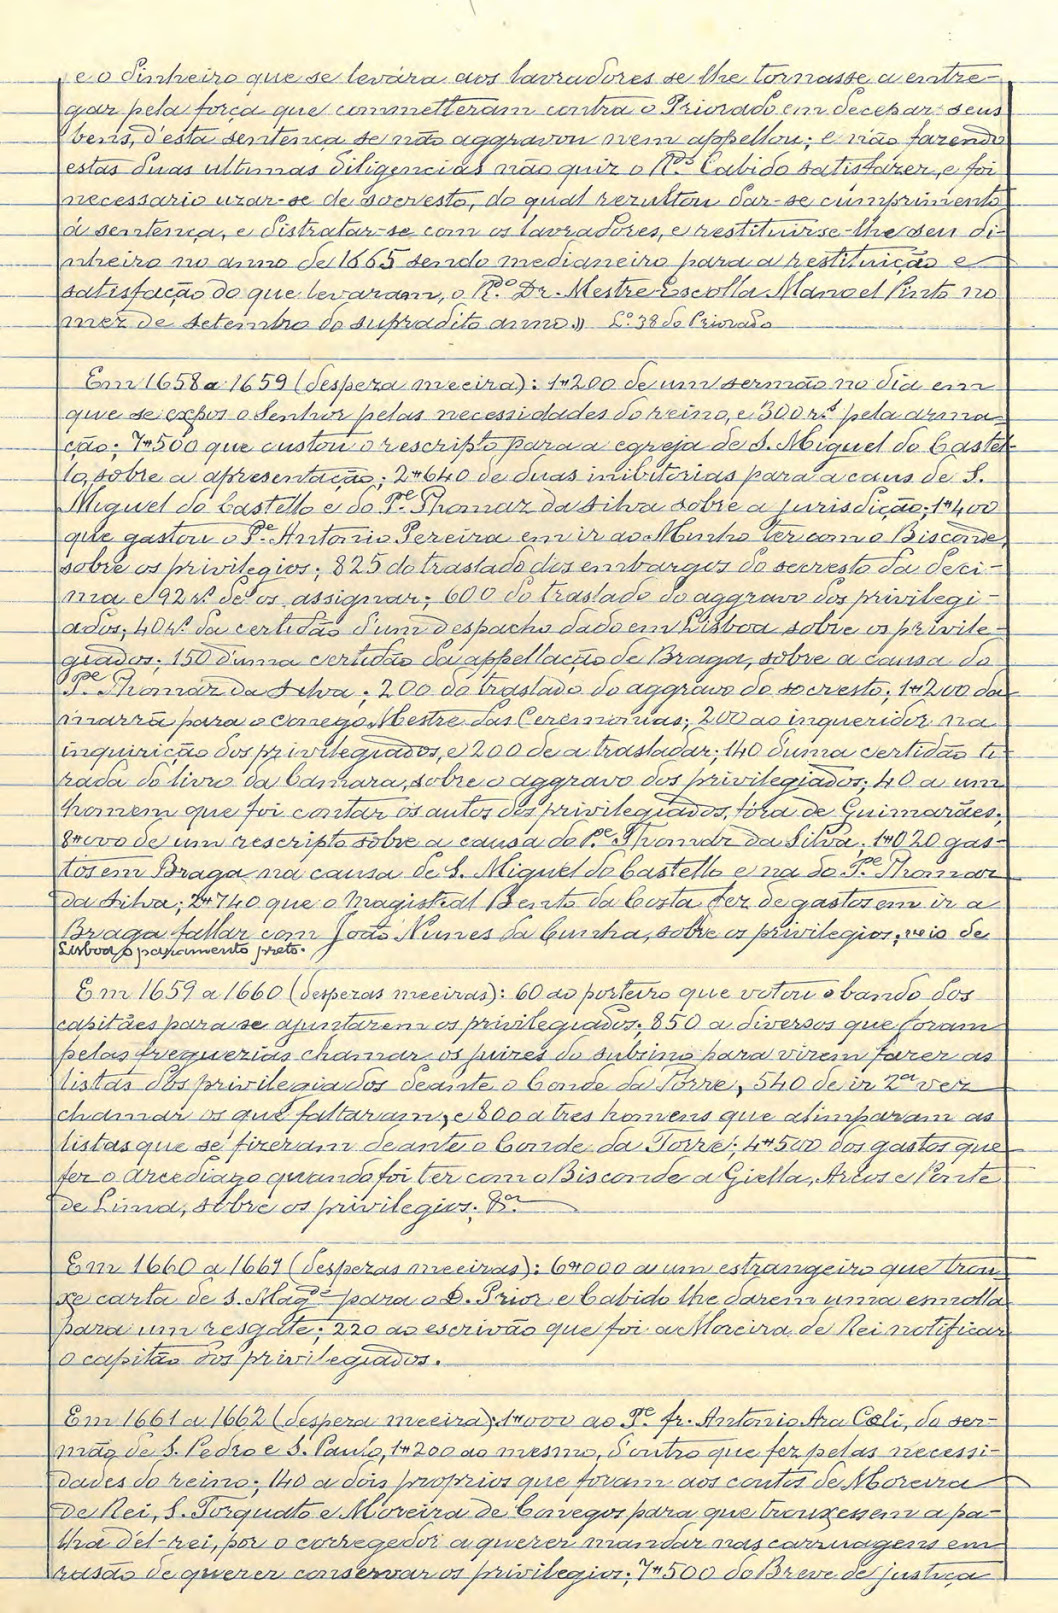 e o dinheiro que se levára aos lavradores se lhe tornasse a entre-
gar pela força que commetteram contra o Priorado em decepar seus
bens, d'esta sentença se não aggravou nem appellou; e não fazendo
estas duas ultimas diligencias não quiz o R.do Cabido satisfazer, e foi
necessario uzar-se de socresto, do qual rezultou dar-se cumprimento
á sentença, e distratar-se com os lavradores, e restituir-se-lhe seu di-
nheiro no anno de 1665 sendo medianeiro para a restituição e
satisfação do que levaram, o R.do Dr. Mestre-Escolla Manoel Pinto no
mez de setembro do supradito anno.» L.o 38 do Priorado
Em 1658 a 1659 (despeza meeira): 1#200 de um sermão no dia em
que se expos o Senhor pelas necessidades do reino, e 300 r.s pela arma-
ção; 7#500 que custou o rescripto para a egreja de S. Miguel do Castel-
lo, sobre a apresentação; 2#640 de duas inibitorias para a caus de S.
Miguel do Castello e do P.e Thomaz da Silva sobre a jurisdição; 1#400
que gastou o P.e Antonio Pereira em ir ao Minho ter com o Bisconde,
sobre os privilegios; 825 do traslado dos embargos do secresto da deci-
ma e 92 r.s de os assignar; 600 do traslado do aggravo dos privilegi-
ados; 40 r.s da certidão d'um despacho dado em Lisboa sobre os privile-
giados; 150 d'uma certidão da appellação de Braga, sobre a causa do
P.e Thomaz da Silva; 200 do traslado do aggravo do socresto; 1#200 da
marrã para o conego Mestre das Ceremonias; 200 ao inqueridor na
inquirição dos privilegiados, e 200 de a trasladar; 140 d'uma certidão ti-
rada do livro da Camara, sobre o aggravo dos privilegiados; 40 a um
homem que foi contar os autos dos privilegiados, fóra de Guimarães;
8#000 de um rescripto sobre a causa do P.e Thomaz da Silva; 1#020 gas-
tos em Braga na causa de S. Miguel do Castello e na do P.e Thomaz
da Silva; 2#740 que o Magistral Bento da Costa fez de gastos em ir a
Braga fallar com João Nunes da Cunha, sobre os privilegios; veio de
Lisboa o paramento preto.
Em 1659 a 1660 (despezas meeiras): 60 ao porteiro que votou o bando dos
capitães para se ajuntarem os privilegiados; 850 a diversos que foram
pelas freguezias chamar os juizes do subsino para virem fazer as
listas dos privilegiados deante o Conde da Torre, 540 de ir 2.a vez
chamar os que faltaram, e 800 a tres homens que alimparam as
listas que se fizeram deante o Conde da Torre; 4#500 dos gastos que
fez o arcediago quando foi ter com o Bisconde a Giella, Arcos e Ponte
de Lima, sobre os privilegios;
Em 1660 a 1661 (despezas meeiras): 6#000 a um estrangeiro que trou-
xe carta de S. Mag.de para o D. Prior e Cabido lhe darem uma esmolla
para um resgate; 220 ao escrivão que foi a Moreira de Rei notificar
o capitão dos privilegiados.
Em 1661 a 1662 (despeza meeira): 1#000 ao P.e fr. Antonio Ara Cœli, do ser-
mão de S. Pedro e S. Paulo, 1#200 ao mesmo, d'outro que fez pelas necessi-
dades do reino; 140 a dois proprios que foram aos coutos de Moreira
de Rei, S. Torquato e Moreira de Conegos para que trouxessem a pa-
lha d'el-rei, por o corregedor a querer mandar nas carruagens em
rasão de querer conservar os privilegios; 7#500 do Breve de justiça